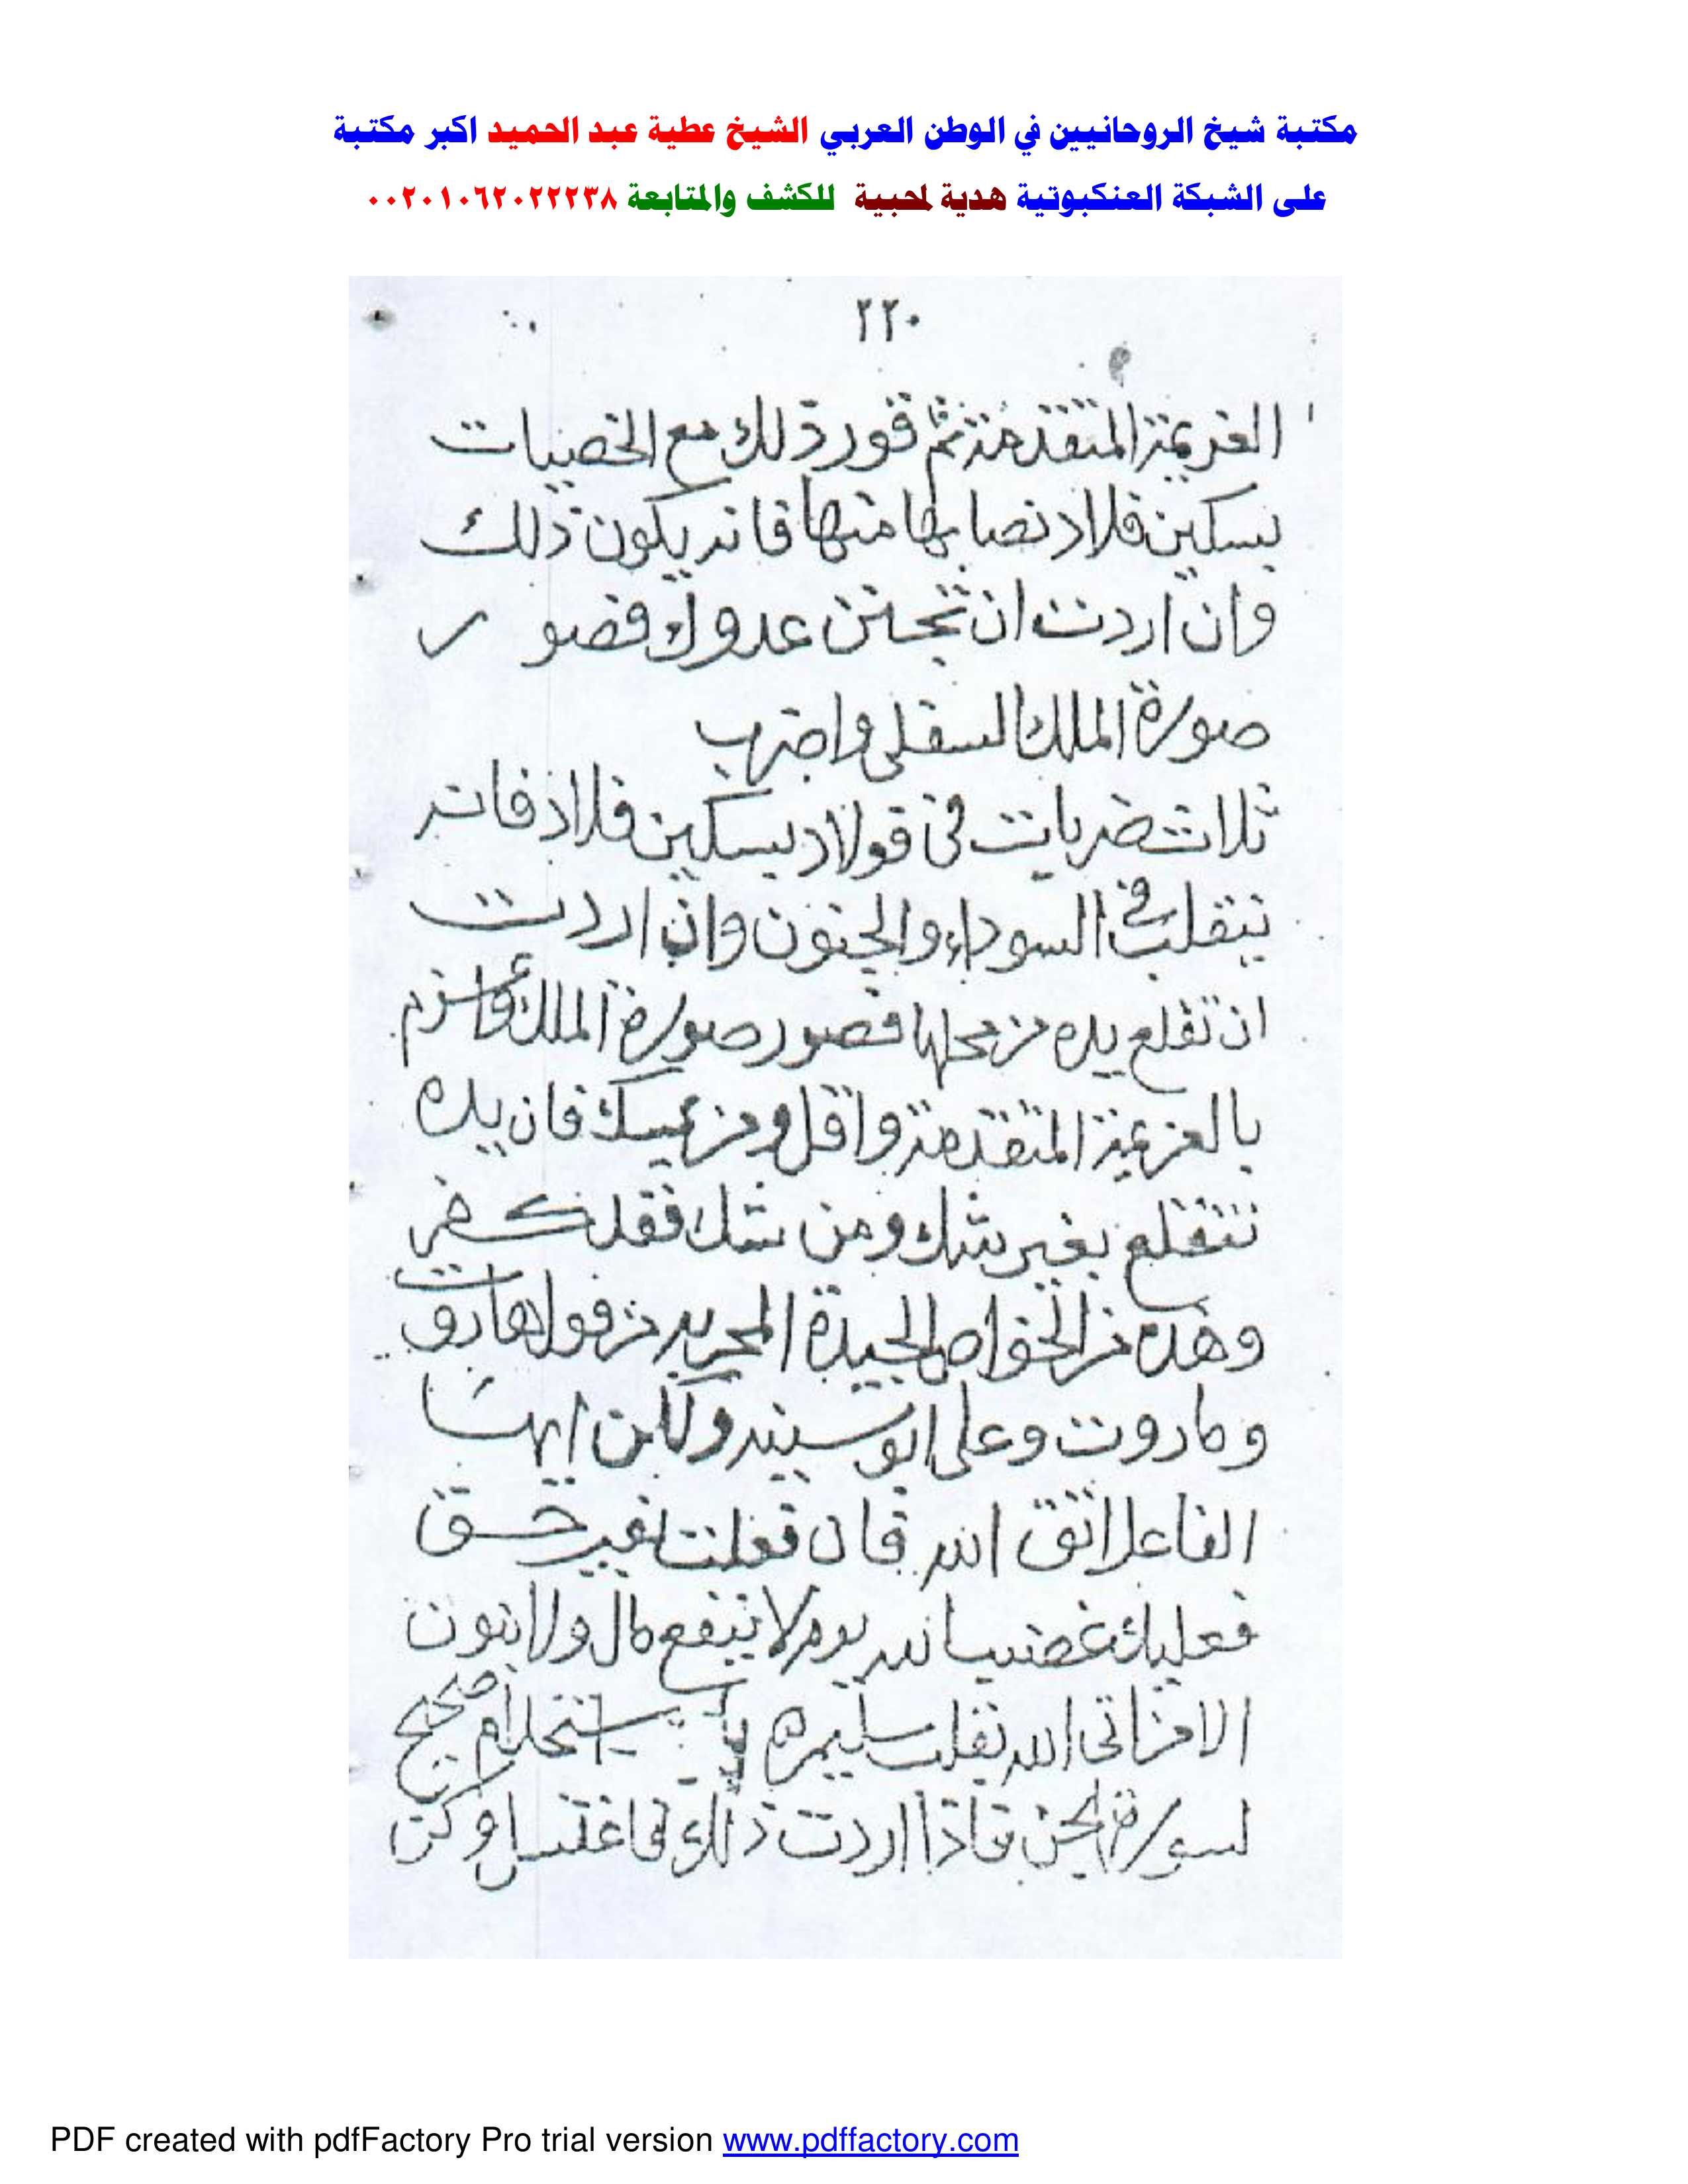 مكتبة شيخ الروحانيين في الوطن العربي الشيخ عطية عبد الحميد اكبر مكتبة
على الشبكة العنكبوتية هدية لمحبية للكشف والمتابعة ٠٠٢٠١٠٦٢٠٢٢٢٣٨
٢٢٠
العزيمة المتقدمة ثم قور ذلك مع الخصيات
بسكين فلاد نصابها منها فانه يكون ذلك
وان اردت ان تجنن عدوك فصور
صورة الملك السفلى واضرب
ثلاث ضربات فى فولاد بسكين فلاد فانه
ينقلب فى السوداء والجنون وان اردت
ان تقلع يده من محلها فصور صورة الملك
بالعزيمة المتقدمة فان يده
تنقلع بغير شك ومن شك فقد كفر
وهذه من الخواص الجيدة المجربه من قول هاروت
وماروت وعلى ابو سينه ولكن ايها
الفاعل اتق الله فان فعلت بغير حق
فعليك غضب الله يوم لا ينفع مال ولا بنون
الا من اتى الله بقلب سليم استخدام صحيح
لسورة الجن فاذا اردت ذلك فاغتسل وكن
PDF created with pdfFactory Pro trial version www.pdffactory.com